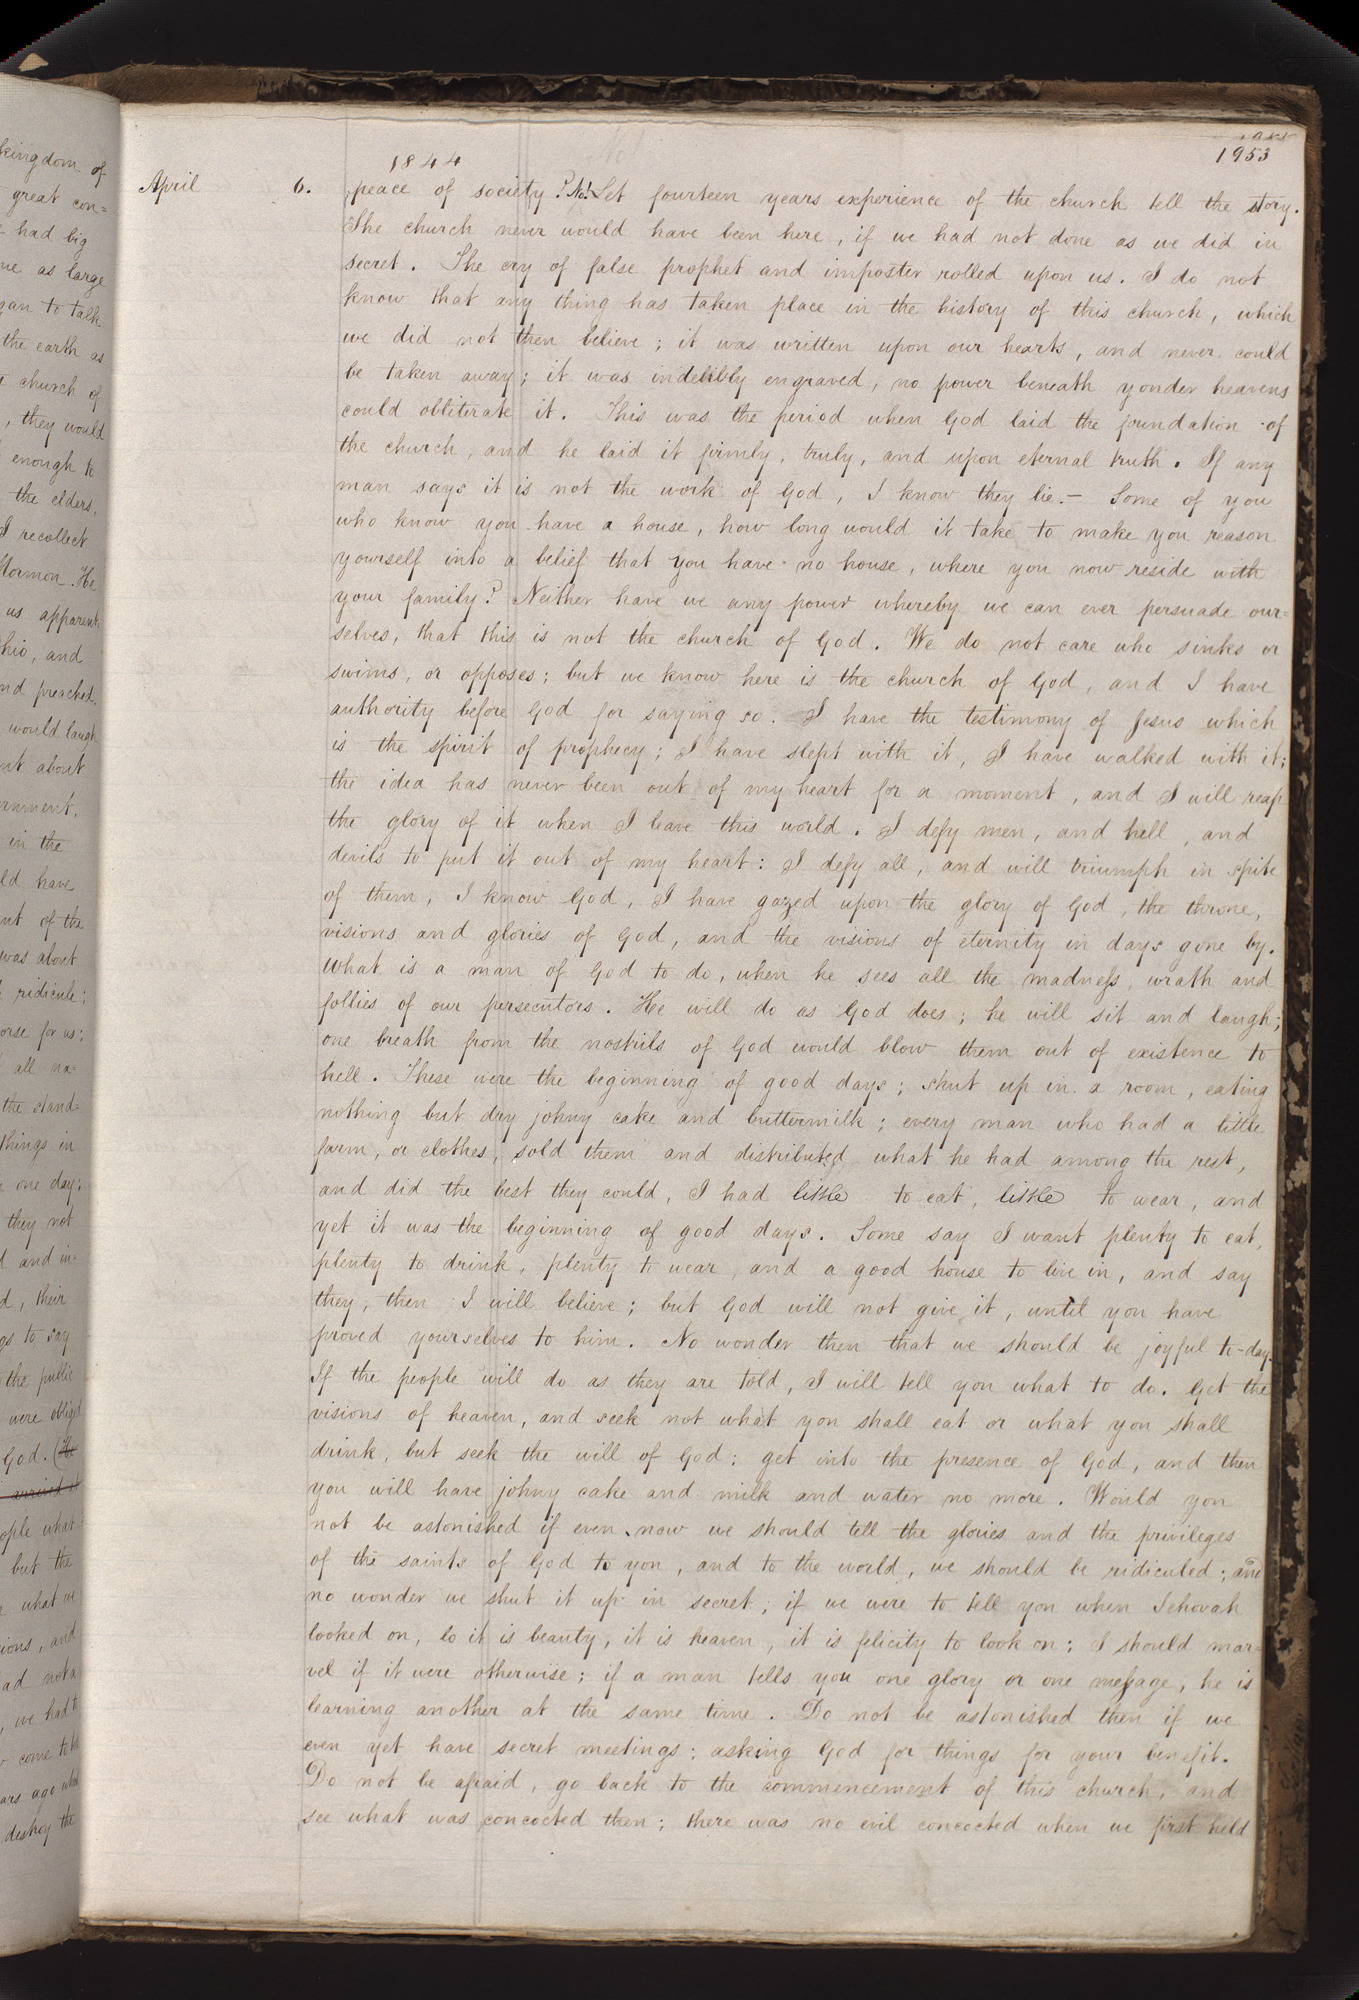 1953
1844
April 6. peace of society? No! Let fourteen years experience of the church tell the story.
The church never would have been here, if we had not done as we did in
secret. The cry of false prophet and imposter rolled upon us. I do not
know that any thing has taken place in the history of this church, which
we did not then believe; it was written upon our hearts, and never could
be taken away; it was indelibly engraved, no power beneath yonder heavens
could obliterate it. This was the period when God laid the foundation of
the church, and he laid it firmly, truly, and upon eternal truth. If any
man says it is not the work of God, I know they lie.— Some of you
who know you have a house, how long would it take to make you reason
yourself into a belief that you have no house, where you now reside with
your family? Neither have we any power whereby we can ever persuade our=
selves, that this is not the church of God. We do not care who sinks or
swims, or opposes; but we know here is the church of God, and I have
authority before God for saying so. I have the testimony of Jesus which
is the spirit of prophecy; I have slept with it, I have walked with it;
the idea has never been out of my heart for a moment, and I will reap
the glory of it when I leave this world. I defy men, and hell, and
devils to put it out of my heart: I defy all, and will triumph in spite
of them, I know God, I have gazed upon the glory of God, the throne,
visions and glories of God, and the visions of eternity in days gone by.
What is a man of God to do, when he sees all the madness, wrath and
follies of our persecutors. He will do as God does; he will sit and laugh;
one breath from the nostrils of God would blow them out of existence to
hell. These were the beginning of good days; shut up in a room, eating
nothing but dry johny cake and buttermilk; every man who had a little
farm, or clothes, sold them and distributed what he had among the rest,
and did the best they could, I had little to eat, little to wear, and
yet it was the beginning of good days. Some say I want plenty to eat,
plenty to drink, plenty to wear, and a good house to live in, and say
they, then I will believe; but God will not give it, until you have
proved yourselves to him. No wonder then that we should be joyful to-day.
If the people will do as they are told, I will tell you what to do. Get the
visions of heaven, and seek not what you shall eat or what you shall
drink, but seek the will of God: get into the presence of God, and then
you will have johny cake and milk and water no more. Would you
not be astonished if even now we should tell the glories and the privileges
of the saints of God to you, and to the world, we should be ridiculed; and
no wonder we shut it up in secret; if we were to tell you when Jehovah
looked on, lo it is beauty, it is heaven, it is felicity to look on; I should mar=
vel if it were otherwise; if a man tells you one glory or one message, he is
learning another at the same time. Do not be astonished then if we
even yet have secret meetings: asking God for things for your benefit.
Do not be afraid, go back to the commencement of this church, and
see what was concocted then; there was no evil concocted when we first held
kingdom of
great con=
had big
me as large
to talk
the earth as
church of
, they would
enough to
the elders,
I recollect
Mormon. He
us apparent
hio, and
nd preached.
would laugh
about
in the
ld have
of the
was about
ridicule;
for us;
all na=
the stand=
things in
one day;
they not
and in=
, their
to say
the public
were obliged
God. (He
arrived at
ople what
but the
what we
ions, and
ad not a
, we had to
come to
ars ago
destroy the